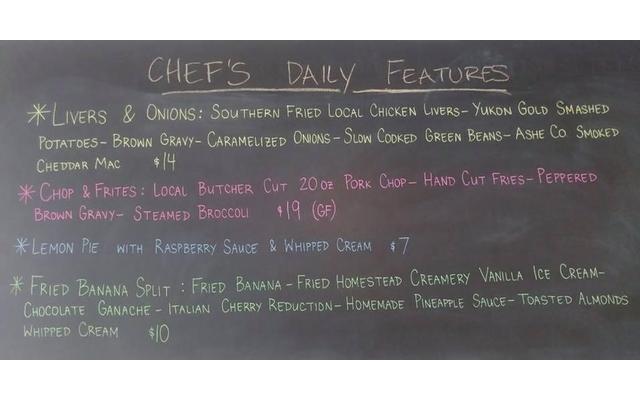 CHEF'S DAILY FEATURES
* LIVERS & ONIONS: SOUTHERN FRIED LOCAL CHICKEN LIVERS- YUKON GOLD SMASHED
POTATOES- BROWN GRAVY- CARAMELIZED ONIONS- SLOW COOKED GREEN BEANS- ASHE CO. SMOKED
CHEDDAR MAC $14
* CHOP & FRITES: LOCAL BUTCHER CUT 20oz PORK CHOP- HAND CUT FRIES- PEPPERED
BROWN GRAVY- STEAMED BROCCOLI $19 (GF)
* LEMON PIE WITH RASPBERRY SAUCE & WHIPPED CREAM $7
* FRIED BANANA SPLIT: FRIED BANANA- FRIED HOMESTEAD CREAMERY VANILLA ICE CREAM-
CHOCOLATE GANACHE- ITALIAN CHERRY REDUCTION- HOMEMADE PINEAPPLE SAUCE- TOASTED ALMONDS
WHIPPED CREAM $10